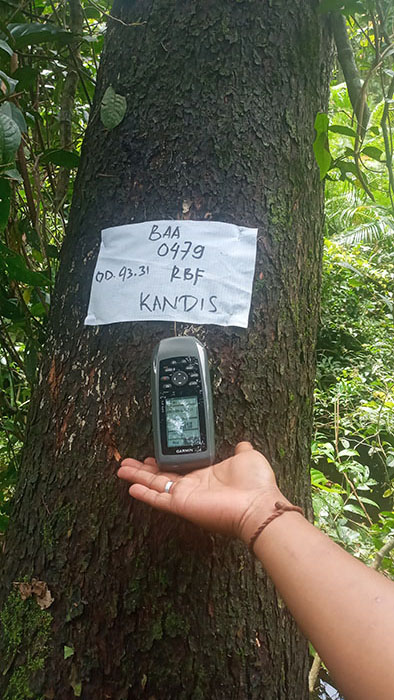 BAA
0479
00.93.31 RBF
KANDIS
GARMIN